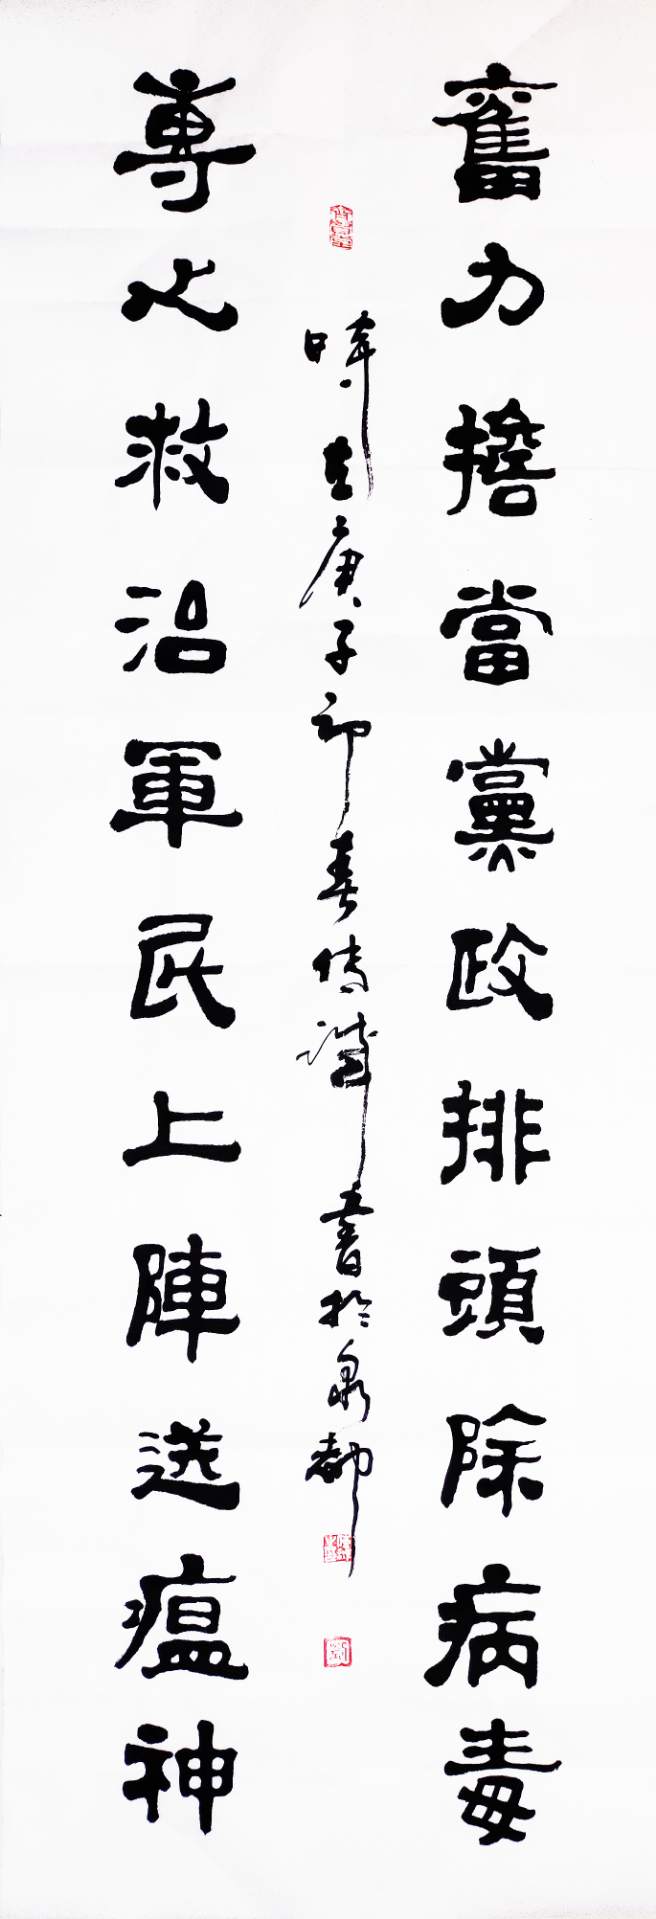 奮力擔當黨政排頭除病毒
時在庚子初春傳謙書於泉都
專心救治軍民上陣送瘟神